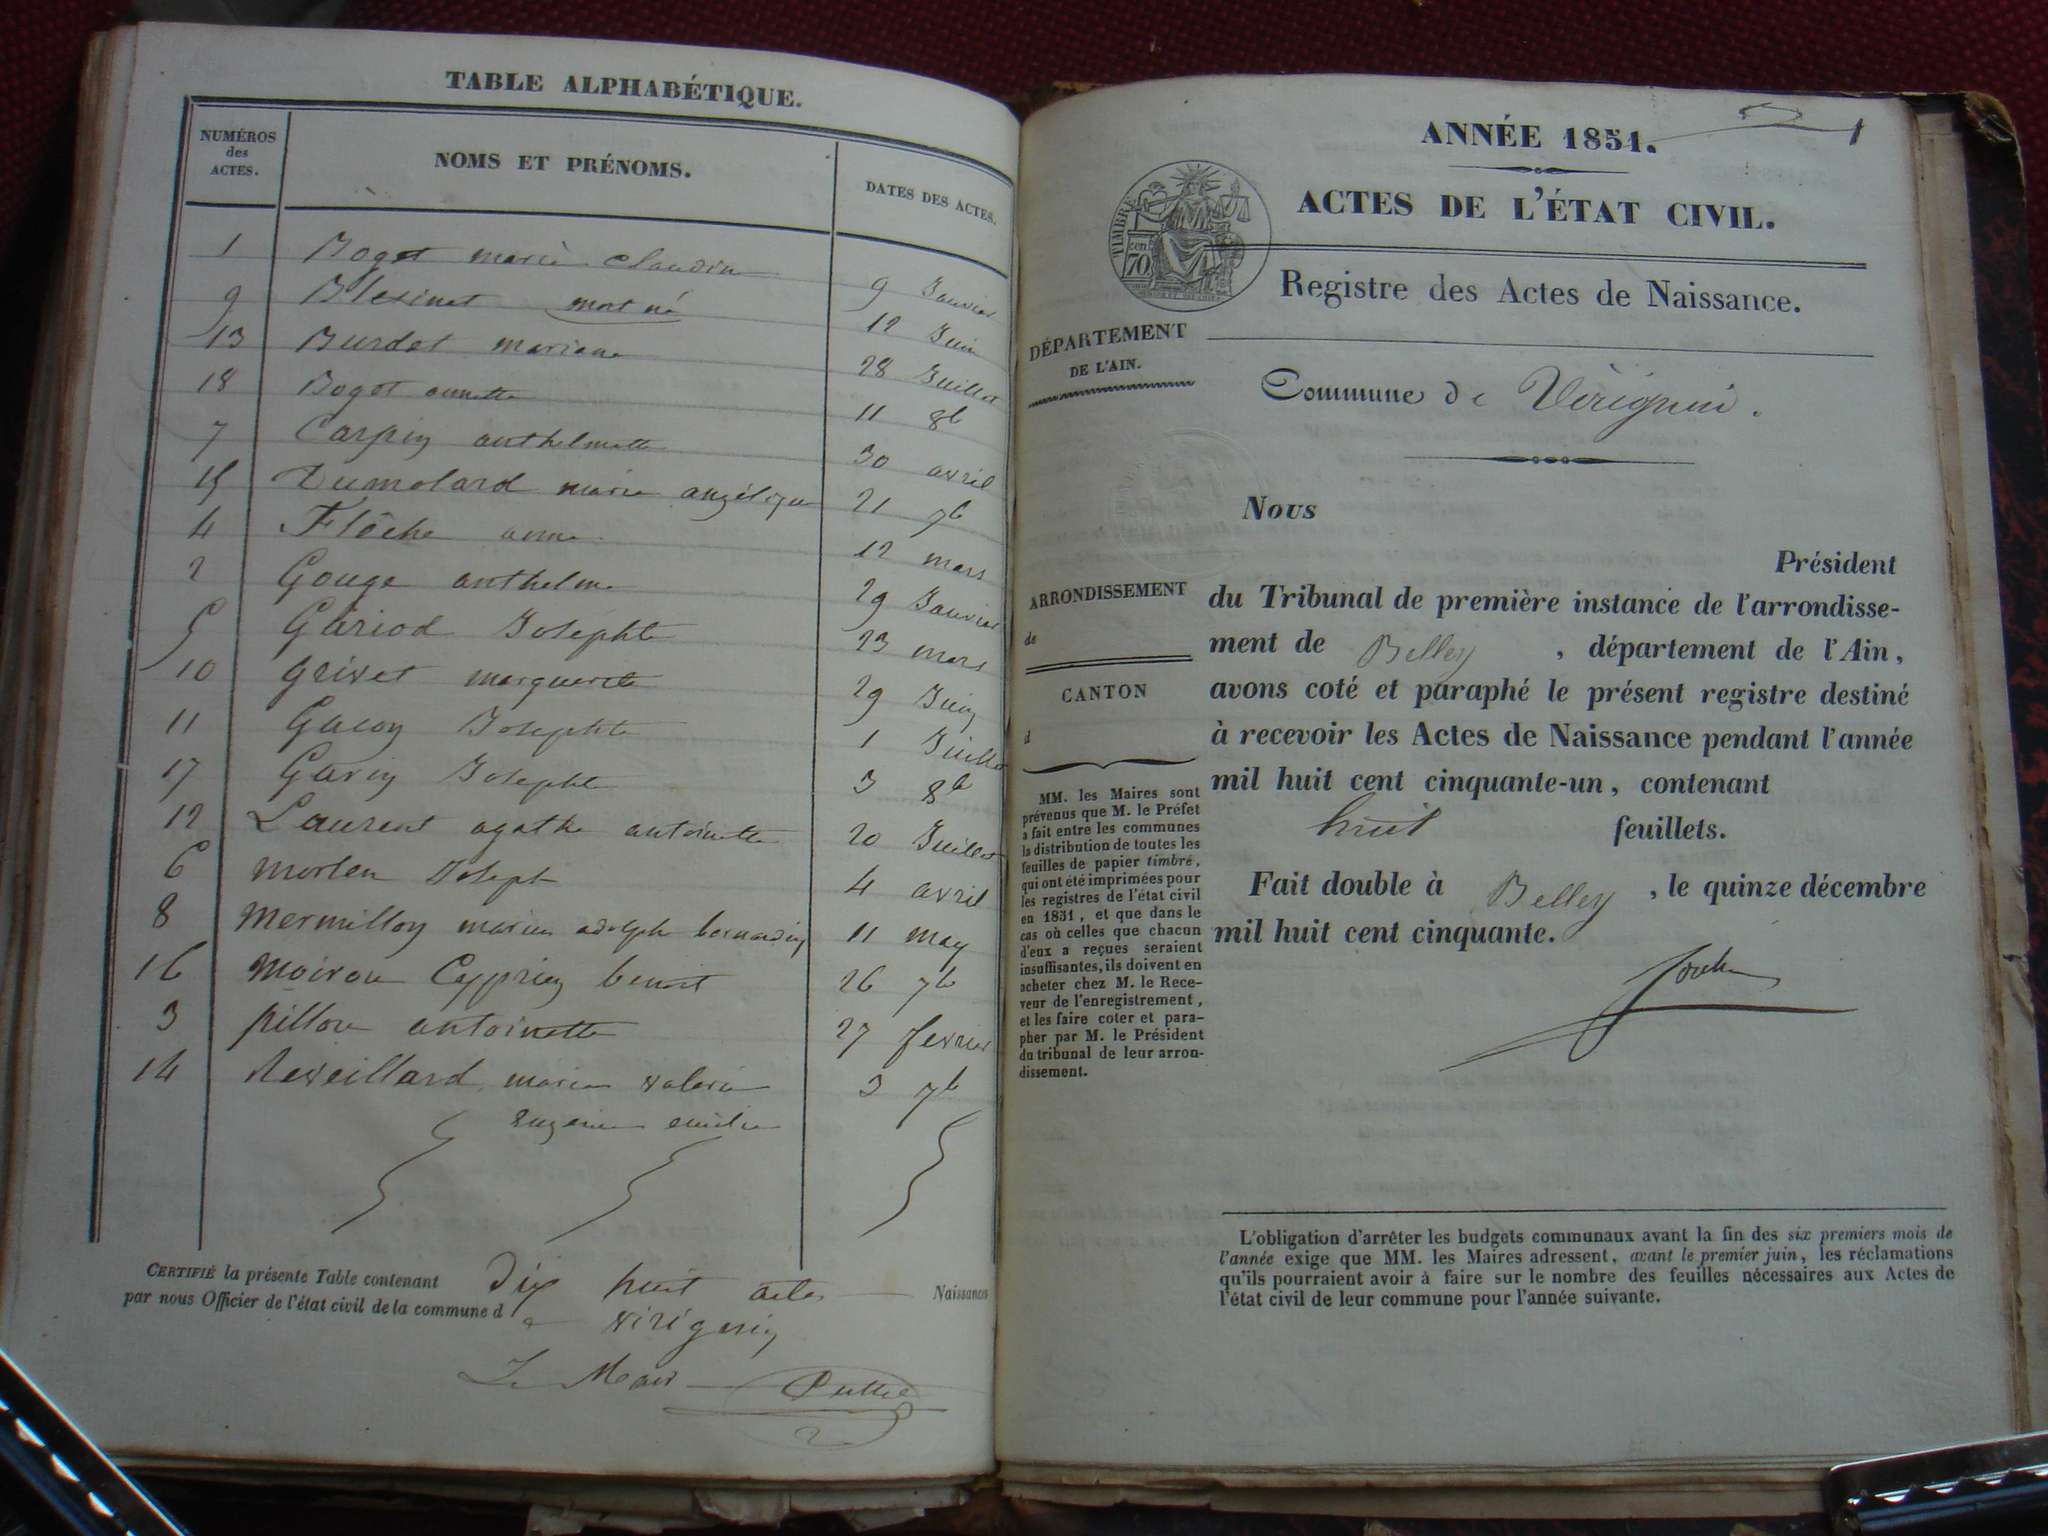 TABLE ALPHABÉTIQUE.
NUMÉROS
des
ACTES.
NOMS ET PRÉNOMS.
DATES DES ACTES.
1 Bogot marie claudine 9 Janvier
9 mort né 12 Juin
13 Burdet mariane 28 Juillet
18 Bogot annette 11 8b
7 Carpin anthelmette 30 avril
15 Dumolard marie angélique 21 7b
4 Flèche anne 12 mars
2 Gouge anthelme 29 Janvier
5 Gariod Josephte 23 mars
10 Grivet marguerite 29 Juin
11 Gacon Josephte 1 Juillet
17 Garin Josephte 3 8b
12 Laurent agathe antoinette 20 Juillet
6 Joseph 4 avril
8 Mermillon marie adolph bernardin 11 may
16 Moiroux Cyprien benoit 26 7b
3 pillou antoinette 27 fevrier
14 Reveillard marie valerie 3 7b
Eugenie emilie
CERTIFIÉ la présente Table contenant Dix huit actes Naissances
par nous Officier de l'état civil de la commune de virignin
Le Maire
1
ANNÉE 1851.
ACTES DE L'ÉTAT CIVIL.
TIMBRE
cen.
70
Registre des Actes de Naissance.
DÉPARTEMENT
DE L'AIN.
Commune de Virignin.
Nous
Président
ARRONDISSEMENT
de
CANTON
d
du Tribunal de première instance de l'arrondisse-
ment de Belley, département de l'Ain,
avons coté et paraphé le présent registre destiné
à recevoir les Actes de Naissance pendant l'année
mil huit cent cinquante-un, contenant
huit feuillets.
Fait double à Belley, le quinze décembre
mil huit cent cinquante.
MM. les Maires sont
prévenus que M. le Préfet
a fait entre les communes
la distribution de toutes les
feuilles de papier timbré,
qui ont été imprimées pour
les registres de l'état civil
en 1851, et que dans le
cas où celles que chacun
d'eux a reçues seraient
insuffisantes, ils doivent en
acheter chez M. le Rece-
veur de l'enregistrement,
et les faire coter et para-
pher par M. le Président
du tribunal de leur arron-
dissement.
L'obligation d'arrêter les budgets communaux avant la fin des six premiers mois de
l'année exige que MM. les Maires adressent, avant le premier juin, les réclamations
qu'ils pourraient avoir à faire sur le nombre des feuilles nécessaires aux Actes de
l'état civil de leur commune pour l'année suivante.